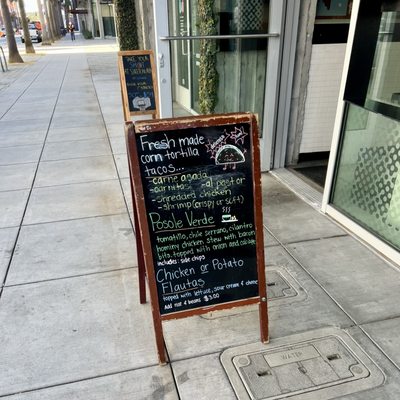 Fresh made
corn tortilla
tacos...
-carne asada
-carnitas -al pastor
-shredded chicken
-shrimp (crispy or soft)
Posole Verde
tomatillo, chile serrano, cilantro
hominy chicken stew with bacon
bits. topped with onion and
includes: side chips
Chicken or Potato
Flautas
topped with lettuce, sour cream & cheese
Add rice & beans $3.00
WATER